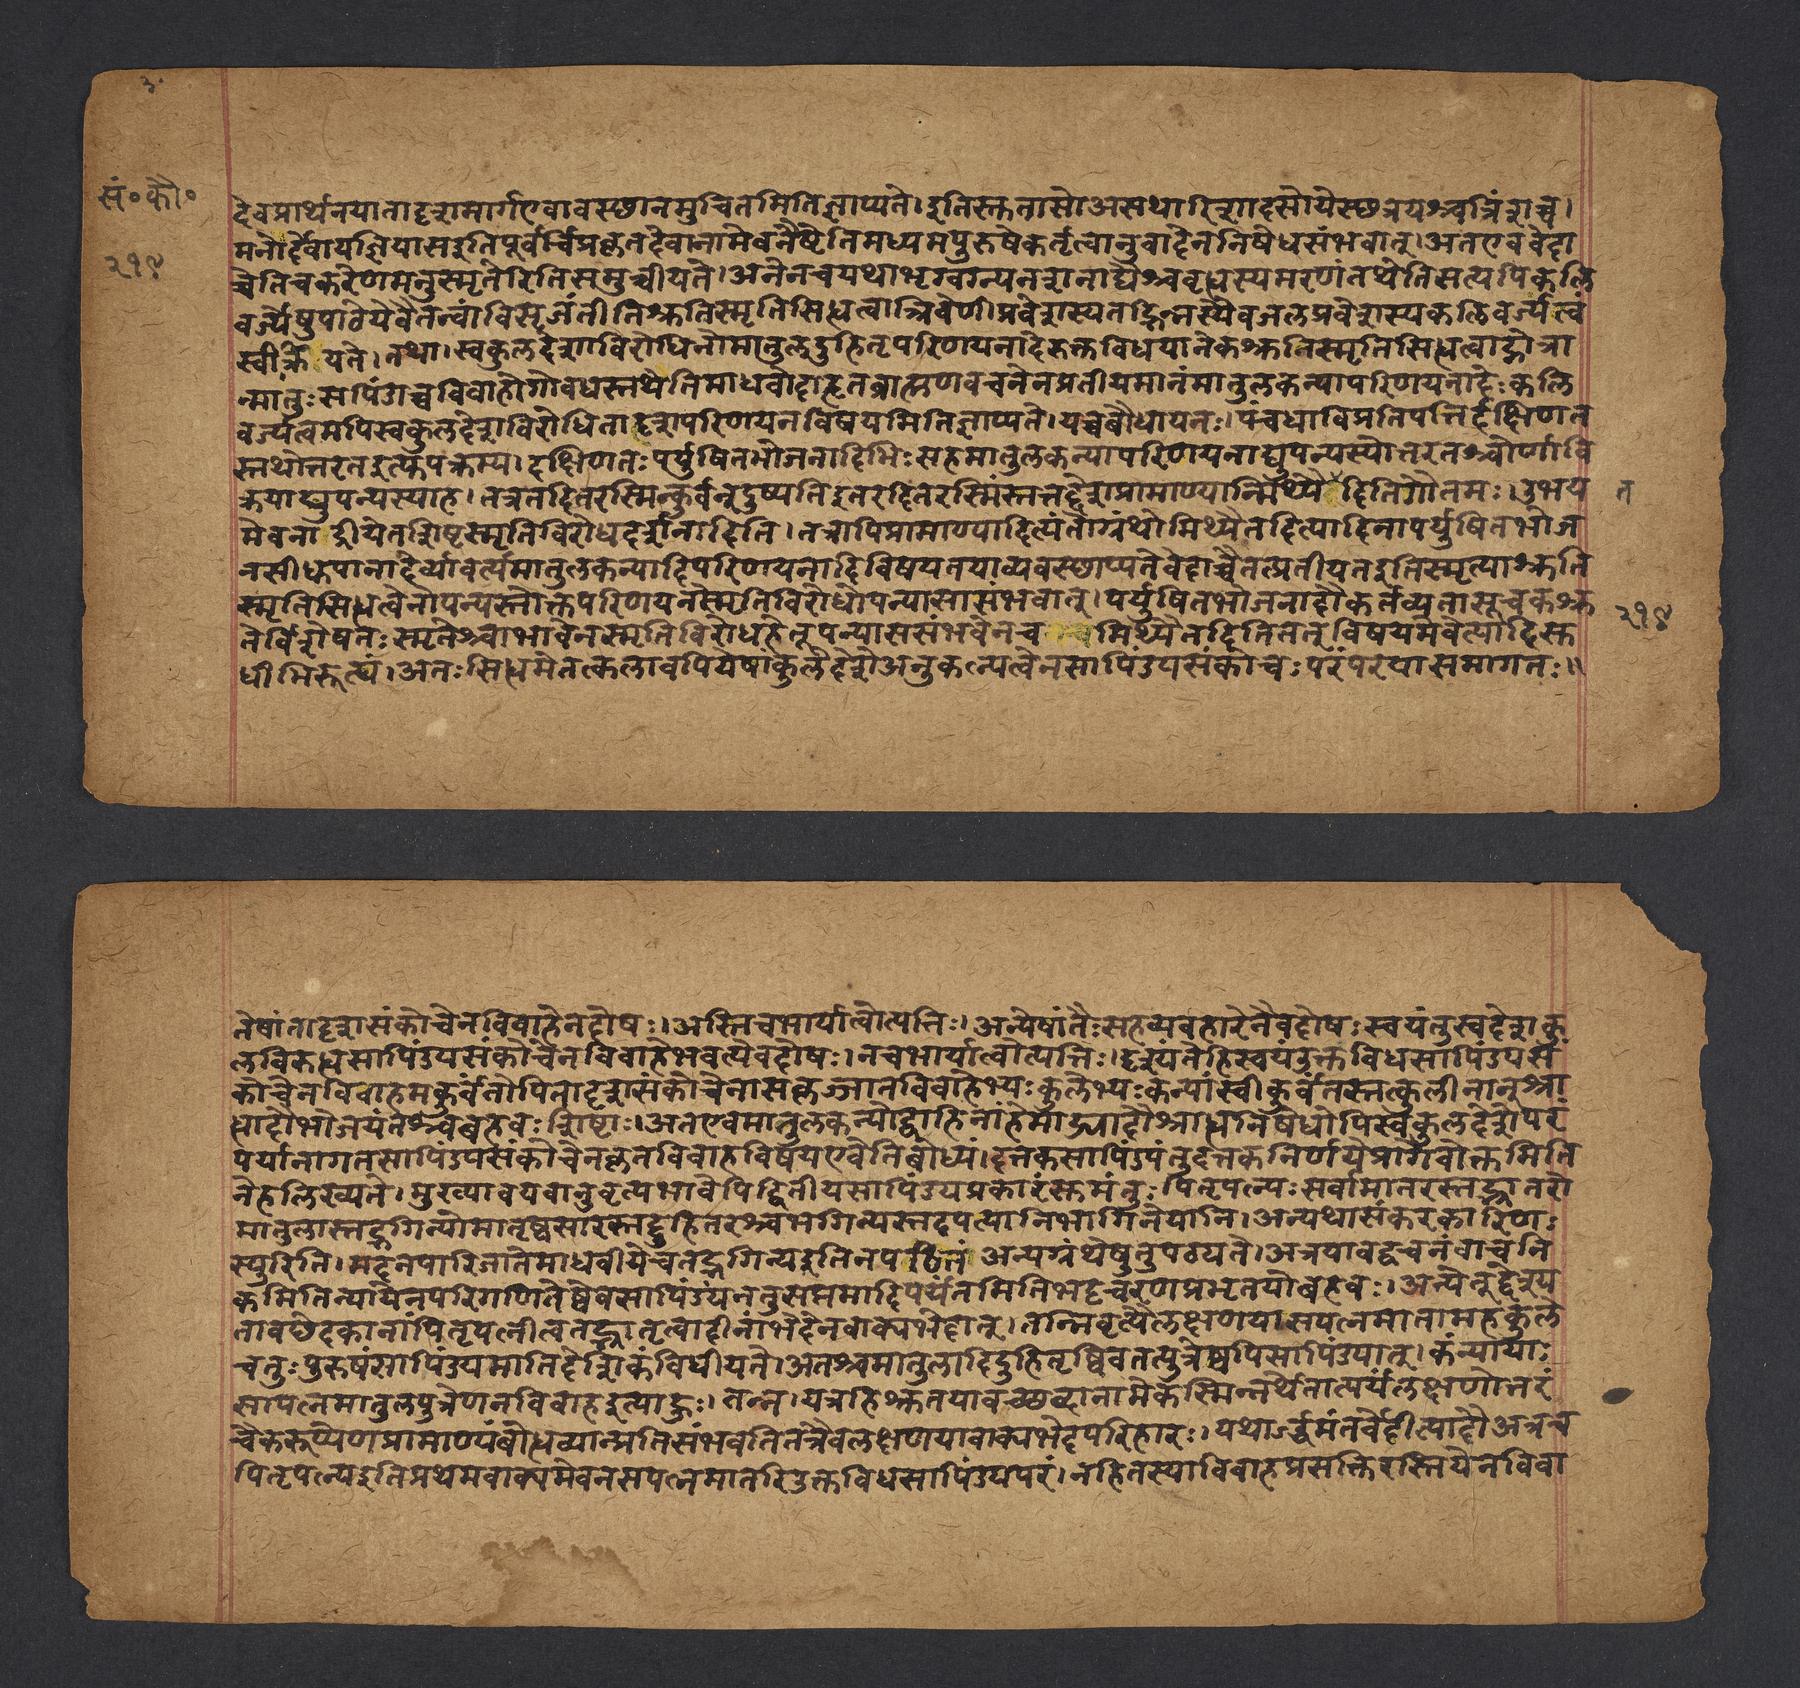 ३॰
सं॰कौ॰
२१९
देवप्रार्थनयातादृशमार्गएवावस्छानमुचितमितिज्ञाप्यते।इतिस्क्ततासोअसथारिशादसोयेस्छत्रयश्चत्रिंशच्च।
मनोर्देवायज्ञियासइतिपूर्वर्चिप्रकृतदेवानामेवनैष्टेतिमध्यमपुरुषेकर्तृत्वानुवादेननिषेधसंभवात्।अतएववेदा
च्चेतिचकारेणमनुस्मृतेरितिसमुच्चीयते।अनेनचयथाभृग्वग्न्यनशनाद्यैश्चवृद्धस्यमरणंतथेतिसत्यपिकलि
वर्ज्येषुपाठेयेवैतन्वांविसृजंतीतिश्रुतिस्मृतिसिद्धत्वात्रिवेणीप्रवेशस्यतद्भिन्नस्यैवजलप्रवेशस्यकलिवर्ज्यत्वं
स्वीक्रियते।तथा।स्वकुलदेशाविरोधिनोमातुलदुहितृपरिणयनादेरुक्तविधयानेकश्रुतिस्मृतिसिद्धत्वाद्गोत्रा
न्मातुःसपिंडाच्चविवाहोगोवधस्तथेतिमाधवोदाहृतब्राह्मणवचनेनप्रतीयमानंमातुलकन्यापरिणयनादेःकलि
वर्ज्यत्वमपिस्वकुलदेशाविरोधितादृशपरिणयनविषयमितिज्ञाप्यते।यच्चबौधायनः।पंचधाविप्रतिपत्तिर्दक्षिणत
स्तथोत्तरतइत्युपक्रम्य।दक्षिणतःपर्युषितभोजनादिभिःसहमातुलकन्यापरिणयनाद्युपन्यस्योत्तरतश्चोर्णावि
क्रयाद्युपन्यस्याह।तत्रतदितरस्मिन्कुर्वन्दुष्यतिइतरदितरस्मिंस्तत्तद्देशप्रामाण्यान्मिथ्यैदितिगौतमः।उभय
त
मेवनाद्रियेतशिष्टस्मृतिविरोधदर्शनादिति।तत्रापिप्रामाण्यादित्यंतोग्रंथोमिथ्यैतदित्यादिनापर्युषितभोज
नसीधुपानादेर्व्यावर्त्यमातुलकन्यादिपरिणयनादिविषयतयाव्यवस्छाप्यतेवेदाच्चैतत्प्रतीयतइतिस्मृत्याश्रुति
स्मृतिसिद्धत्वेनोपन्यस्तोक्तपरिणयनेस्मृतिविरोधोपन्यासासंभवात्।पर्युषितभोजनादौकर्तव्यतासूचकश्रु
२१९
तेर्विशेषतःस्मृतेश्चाभावेनस्मृतिविरोधहेतूपन्याससंभवेनचमिथ्यैतदितितत्तुविषयमेवेत्यादिस्तु
धीभिरूह्यं।अतःसिद्धमेतत्कलावपियेषांकुलेदेशेअनुकल्पत्वेनसापिंड्यसंकोचःपरंपरयासमागतः॥
तेषांतादृशसंकोचेनविवाहेनदोषः।अस्तिचभार्यात्वोत्पत्तिः।अन्येषांतैःसहव्यवहारेनैवदोषःस्वयंतुस्वदेशकु
लविरुद्धसापिंड्यसंकोचेनविवाहेभवत्येवदोषः।नचभार्यात्वोत्पत्तिः।दृश्यंतेहिस्वयंउक्तविधसापिंड्यसं
कोचेनविवाहमकुर्वंतोपितादृशसंकोचेनासकृज्जातविवाहेभ्यःकुलेभ्यःकन्यांस्वीकुर्वंतस्तत्कुलीनान्श्रा
द्धादौभोजयंतश्चबहवःशिष्टाः।अतएवमातुलकन्योद्वाहिनांहेमाद्र्यादौश्राद्धनिषेधोपिस्वकुलदेशेपरं
पर्यानागतसापिंड्यसंकोचेनकृतविवाहविषयएवेतिबोध्यं।दत्तकसापिंड्यंतुदत्तकनिर्णयेप्रागेवोक्तमिति
नेहलिख्यते।मुख्यावयवानुवृत्यभावेपिद्वितीयसापिंड्यप्रकारंक्तमंतुःपितृपत्न्यःसर्वामातरस्तद्भ्रातरो
मातुलास्तद्भगिन्योमातृष्वसारस्तद्दुहितरश्चभगिन्यस्तदपत्यानिभागिनेयानि।अन्यथासंकरकारिणः
स्युरिति।मदनपारिजातेमाधवीयेचतद्भगिन्यइतिनपठितं अन्यग्रंथेषुतुपठ्यते।अत्रयावद्वचनंवाचनि
कमितिन्यायेनपरिगणितेष्वेवसापिंड्यंनतुसप्तमादिपर्यंतमितिभट्टचरणप्रभृतयोबहवः।अन्येतूद्देश्य
तावछेदकानांपितृपत्नीत्वतद्भ्रातृत्वादीनांभेदेनवाक्यभेदात्।तन्निवृत्यैलक्षणयासपत्नमातामहकुले
चतुःपुरुषंसापिंड्यमातिदेशिकंविधीयते।अतश्चमातुलादिदुहितृष्विवतत्पुत्रेष्वपिसापिंड्यात्।कन्यायाः
सापत्नमातुलपुत्रेणनविवाहइत्याहुः।तन्न।यत्रहिश्रुतयावच्छब्दानामेकस्मिन्नर्थेतात्पर्यंलक्षणोत्तरं
चैकरूप्येणप्रामाण्यंबोद्धव्यान्प्रतिसंभवतितत्रैवलक्षणयावाक्यभेदपरिहारः।यथार्द्धमंतर्वेदीत्यादौअत्रच
पितृपत्न्यइतिप्रथमवाक्यमेवनसपत्नमातरिउक्तविधसापिंड्यपरं।नहितस्याविवाहप्रसक्तिरस्तियेनविवा